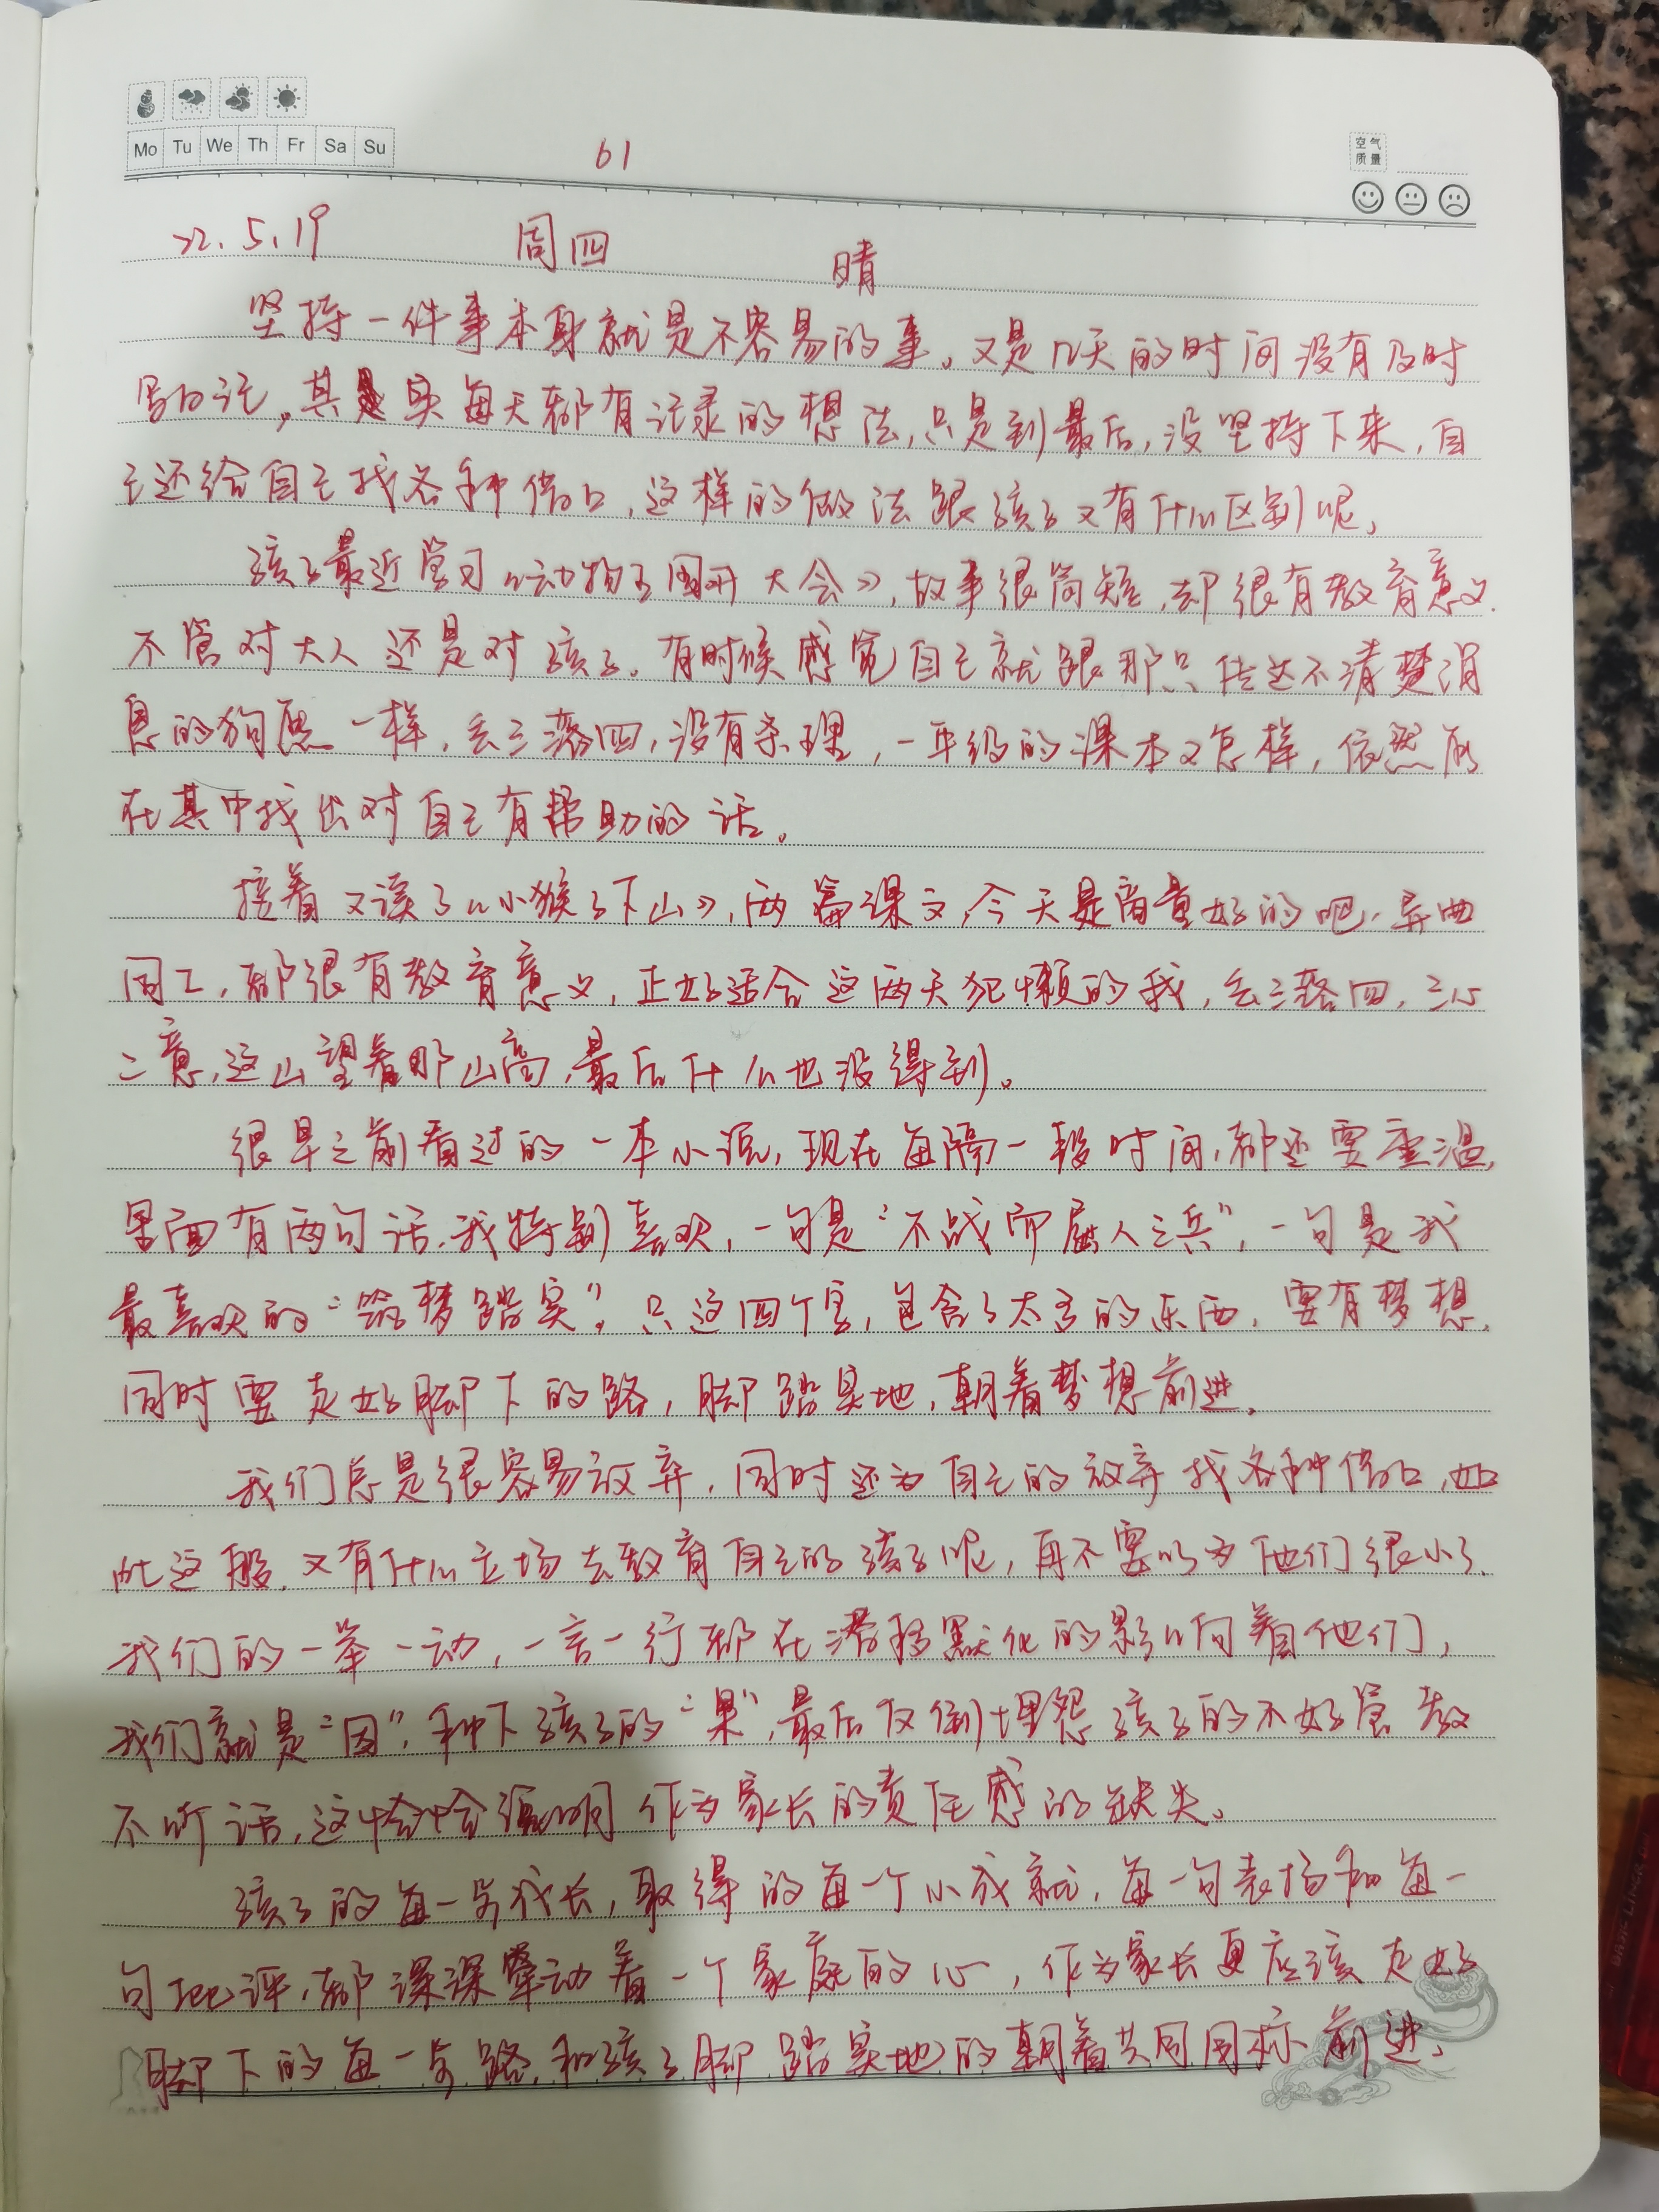 Mo Tu We Th Fr Sa Su
61
空气
质量
22.5.19 周四 晴
坚持一件事本身就是不容易的事。又是几天的时间没有及时
写日记,其实每天都有记录的想法,只是到最后,没坚持下来,自
己还给自己找各种借口,这样的做法跟孩子又有什么区别呢。
孩子最近学习《动物王国开大会》,故事很简短,却很有教育意义.
不管对大人还是对孩子。有时候感觉自己就跟那只传达不清楚消
息的狗熊一样,丢三落四,没有条理,一年级的课本又怎样,依然能
在其中找出对自己有帮助的话。
接着又读了《小猴子下山》,两篇课文,今天是商量好的吧,异曲
同工,都很有教育意义,正好适合这两天犯懒的我,丢三落四,三心
二意,这山望着那山高,最后什么也没得到。
很早之前看过的一本小说,现在每隔一段时间,都还要重温,
里面有两句话,我特别喜欢,一句是“不战而屈人之兵”,一句是我
最喜欢的“筑梦踏实”。只这四个字,包含了太多的东西,要有梦想,
同时要走好脚下的路,脚踏实地,朝着梦想前进。
我们总是很容易放弃,同时还为自己的放弃找各种借口,如
此这般,又有什么立场去教育自己的孩子呢,再不要以为他们很小了.
我们的一举一动,一言一行都在潜移默化的影响着他们,
我们就是“因”,种下孩子的“果”,最后反倒埋怨孩子的不好管教
不听话,这恰恰说明作为家长的责任感的缺失。
孩子的每一步成长,取得的每一个小成就,每一句表扬和每一
句批评,都深深牵动着一个家庭的心,作为家长更应该走好
脚下的每一步路,和孩子脚踏实地的朝着共同目标前进。